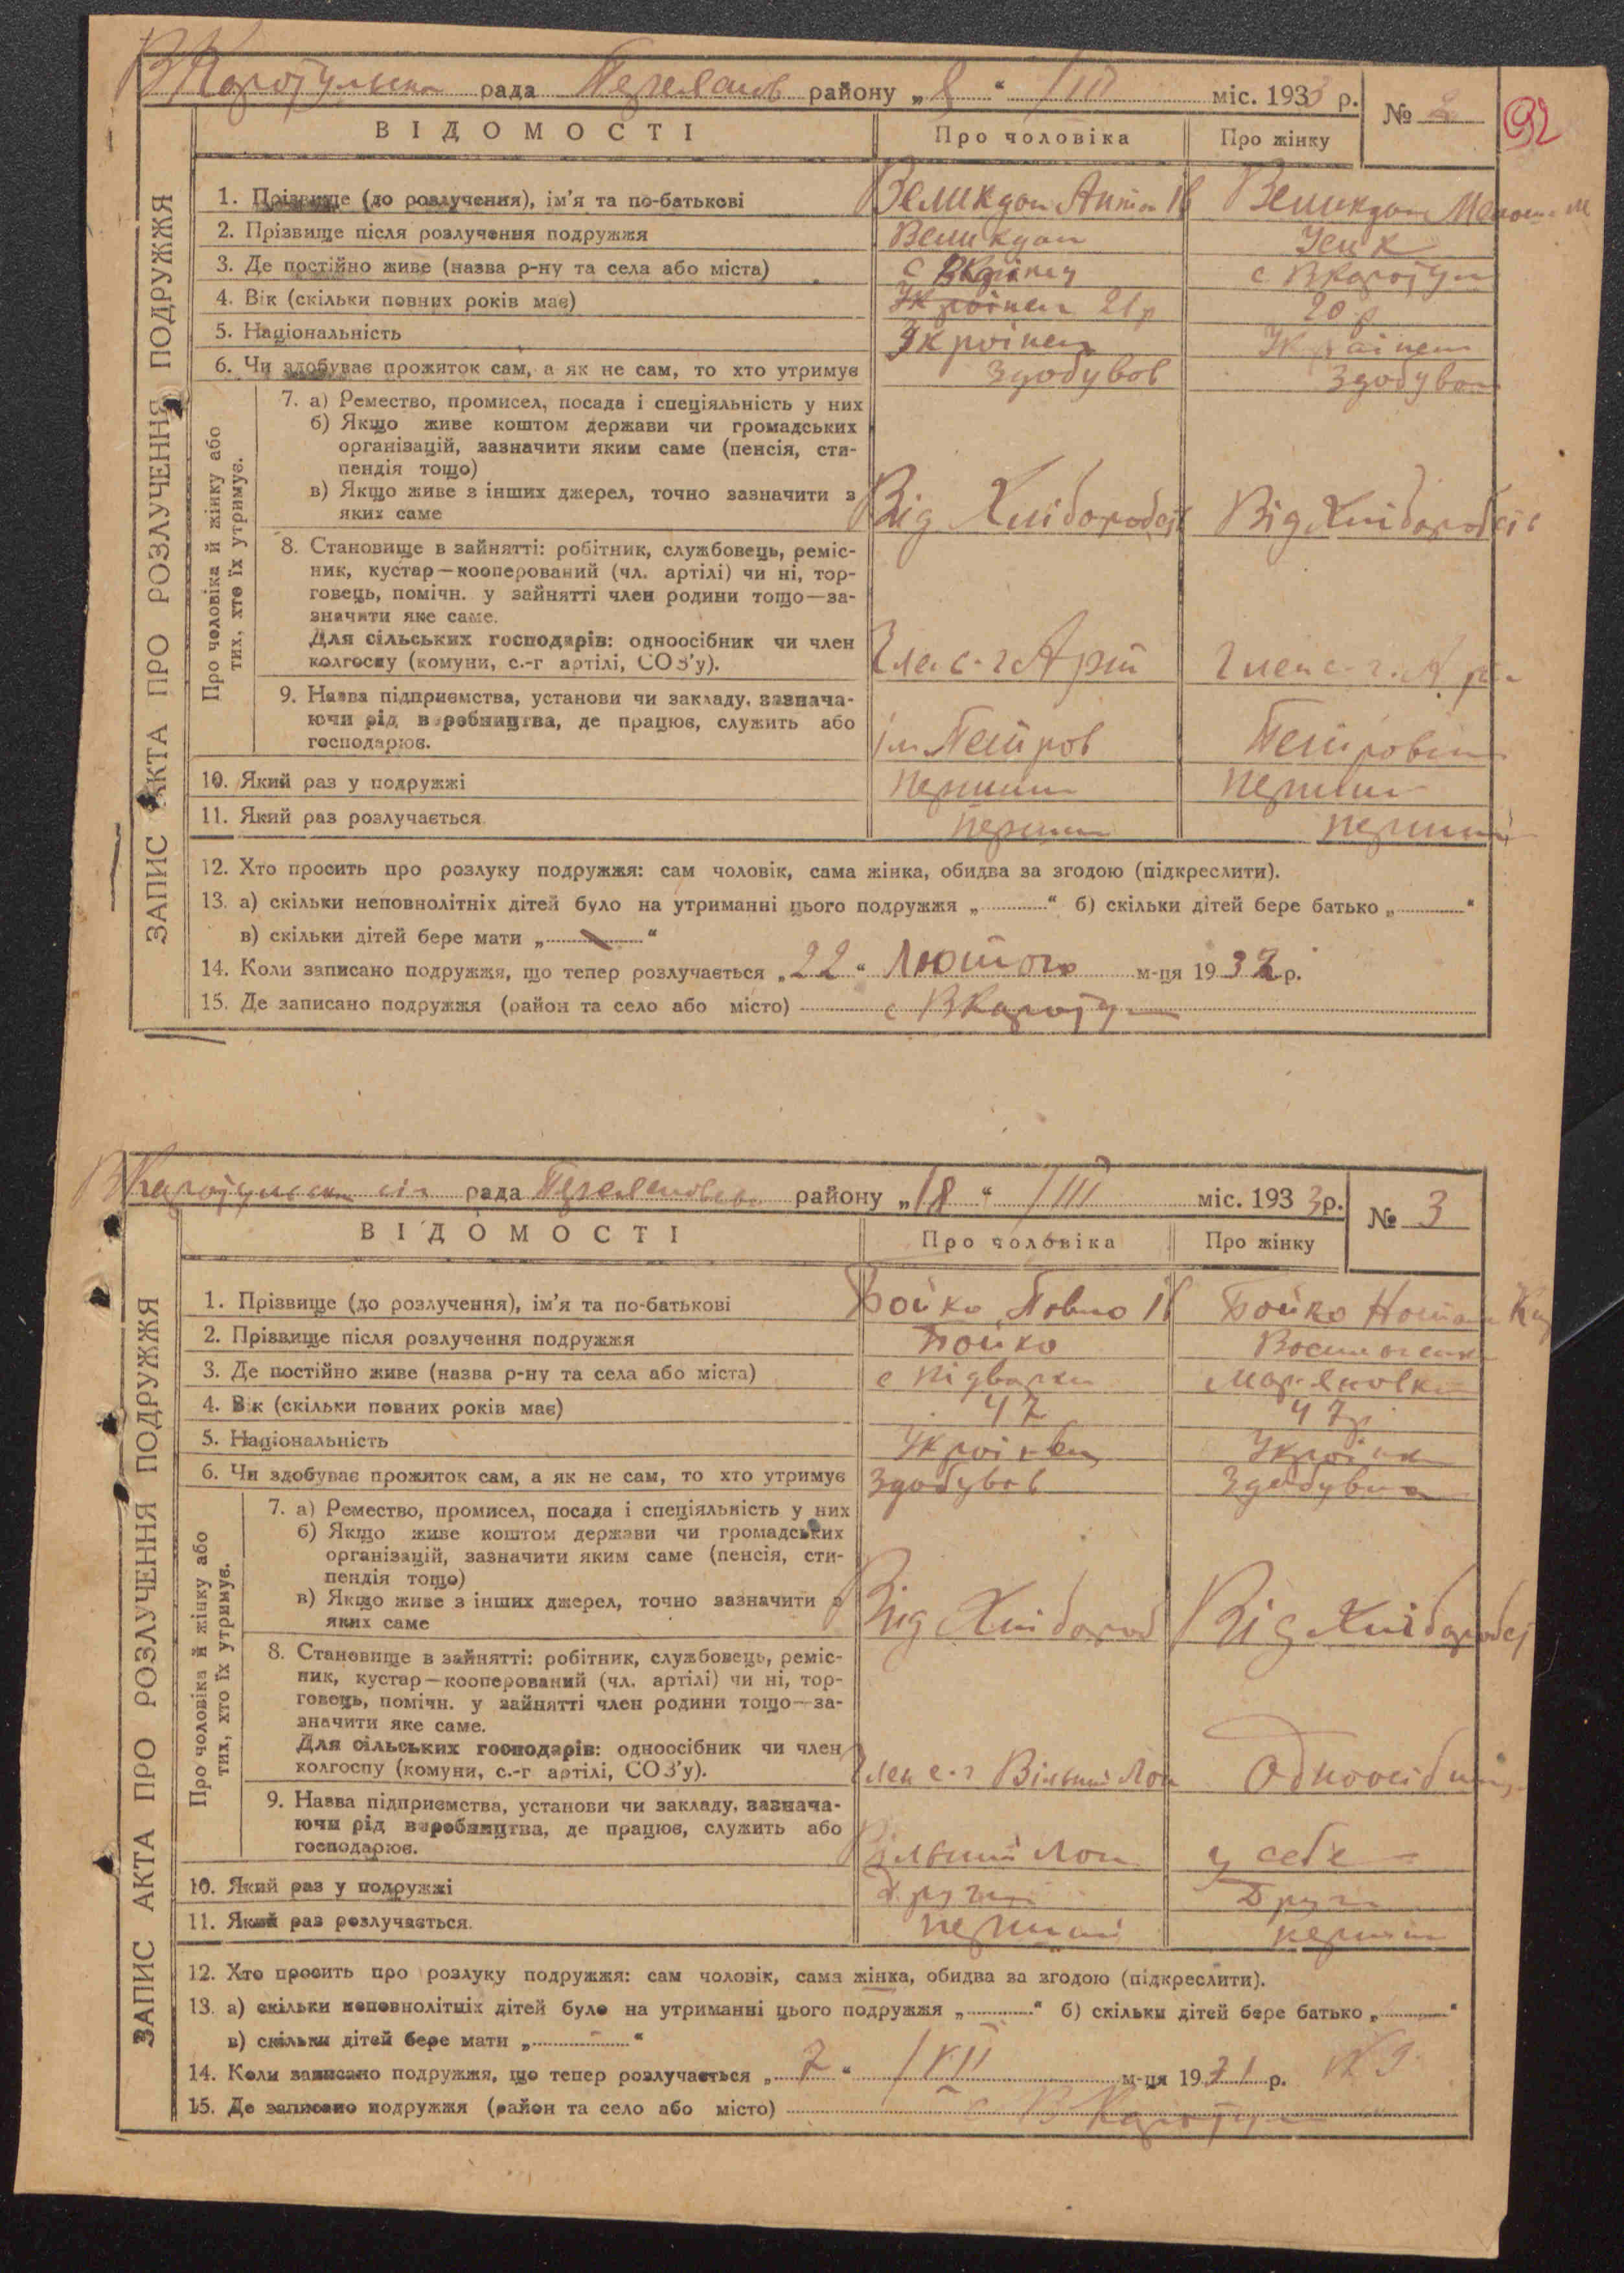 рада району „8“ /III міс. 1933 р.
№ 2
92
ВІДОМОСТІ Про чоловіка Про жінку
ЗАПИС АКТА ПРО РОЗЛУЧЕННЯ ПОДРУЖЖЯ
1. Прізвище (до розлучення), ім'я та по-батькові Великдан Антон Великдан
2. Прізвище після розлучення подружжя Великдан Усик
3. Де постійно живе (назва р-ну та села або міста) с с
4. Вік (скільки повних років має) 21 р 20 р
5. Національність Укроінец Украінец
6. Чи здобуває прожиток сам, а як не сам, то хто утримує Здобував Здобував
Про чоловіка й жінку або
тих, хто їх утримує.
7. а) Ремество, промисел, посада і спеціяльність у них
б) Якщо живе коштом держави чи громадських
організацій, зазначити яким саме (пенсія, сти-
пендія тощо)
в) Якщо живе з інших джерел, точно зазначити з
яких саме Від Від
8. Становище в зайнятті: робітник, службовець, реміс-
ник, кустар—кооперований (чл. артілі) чи ні, тор-
говець, помічн. у зайнятті член родини тощо—за-
значити яке саме.
Для сільських господарів: одноосібник чи член
колгоспу (комуни, с.-г артілі, СОЗ'у). Член с-г. Ар
9. Назва підприємства, установи чи закладу, зазнача-
ючи рід виробництва, де працює, служить або
господарює. ім Петров
10. Який раз у подружжі перший перший
11. Який раз розлучається перший перший
12. Хто просить про розлуку подружжя: сам чоловік, сама жінка, обидва за згодою (підкреслити).
13. а) скільки неповнолітніх дітей було на утриманні цього подружжя „ “ б) скільки дітей бере батько „ “
в) скільки дітей бере мати „ “
14. Коли записано подружжя, що тепер розлучається „22“ Лютого м-ця 1932 р.
15. Де записано подружжя (район та село або місто) с
рада району „18“ /III міс. 1933 р.
№ 3
ВІДОМОСТІ Про чоловіка Про жінку
ЗАПИС АКТА ПРО РОЗЛУЧЕННЯ ПОДРУЖЖЯ
1. Прізвище (до розлучення), ім'я та по-батькові Бойко Павло Бойко
2. Прізвище після розлучення подружжя Бойко
3. Де постійно живе (назва р-ну та села або міста) с Підварки
4. Вік (скільки повних років має) 47 47 р
5. Національність
6. Чи здобуває прожиток сам, а як не сам, то хто утримує Здобував Здобувала
Про чоловіка й жінку або
тих, хто їх утримує.
7. а) Ремество, промисел, посада і спеціяльність у них
б) Якщо живе коштом держави чи громадських
організацій, зазначити яким саме (пенсія, сти-
пендія тощо)
в) Якщо живе з інших джерел, точно зазначити з
яких саме Від Від
8. Становище в зайнятті: робітник, службовець, реміс-
ник, кустар—кооперований (чл. артілі) чи ні, тор-
говець, помічн. у зайнятті член родини тощо—за-
значити яке саме.
Для сільських господарів: одноосібник чи член
колгоспу (комуни, с.-г артілі, СОЗ'у). Член с-г Вільний Лан Одноосібниц
9. Назва підприємства, установи чи закладу, зазнача-
ючи рід виробництва, де працює, служить або
господарює. Вільний Лан у себе
10. Який раз у подружжі Другий Други
11. Який раз розлучається перший перший
12. Хто просить про розлуку подружжя: сам чоловік, сама жінка, обидва за згодою (підкреслити).
13. а) скільки неповнолітніх дітей було на утриманні цього подружжя „ “ б) скільки дітей бере батько „ “
в) скільки дітей бере мати „ “
14. Коли записано подружжя, що тепер розлучається „7“ м-ця 19 р.
15. Де записано подружжя (район та село або місто) с